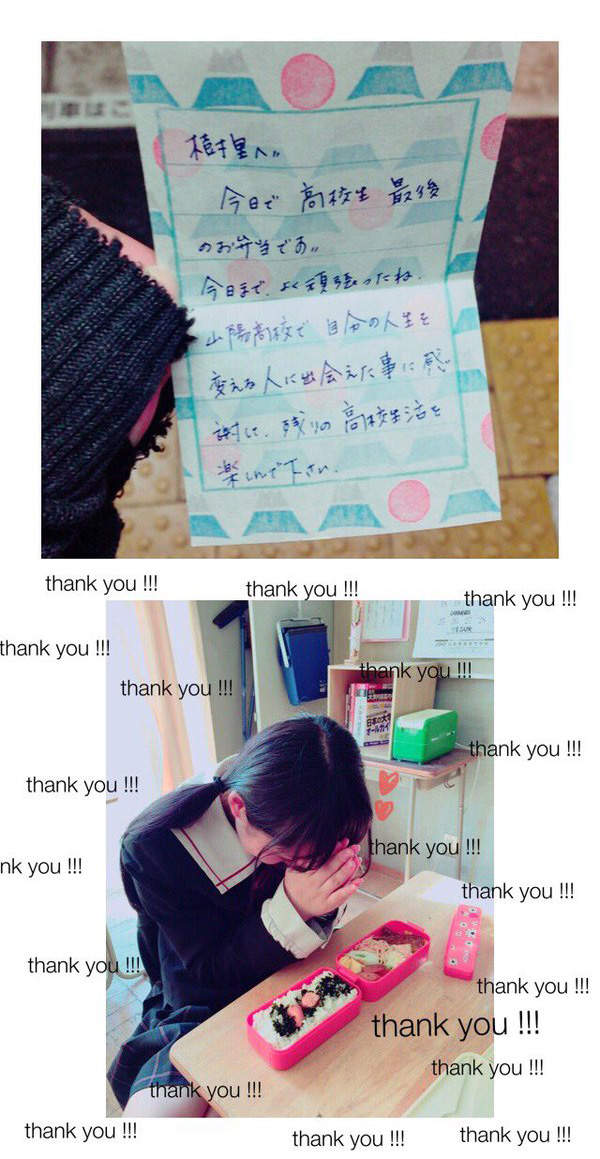 列車はこ
樹里へ〃
今日で 高校生 最後
のお弁当であ〃
今日まで、よく頑張ったね.
山陽高校で 自分の人生を
変える人に出会えた事に感
謝して、残りの高校生活を
楽しんで下さい.
thank you !!!
thank you !!!
thank you !!!
thank you !!!
thank you !!!
thank you !!!
thank you !!!
thank you !!!
thank you !!!
nk you !!!
thank you !!!
thank you !!!
thank you !!!
thank you !!!
thank you !!!
thank you !!!
thank you !!!
thank you !!!
thank you !!!
日本の大学
オールガイ